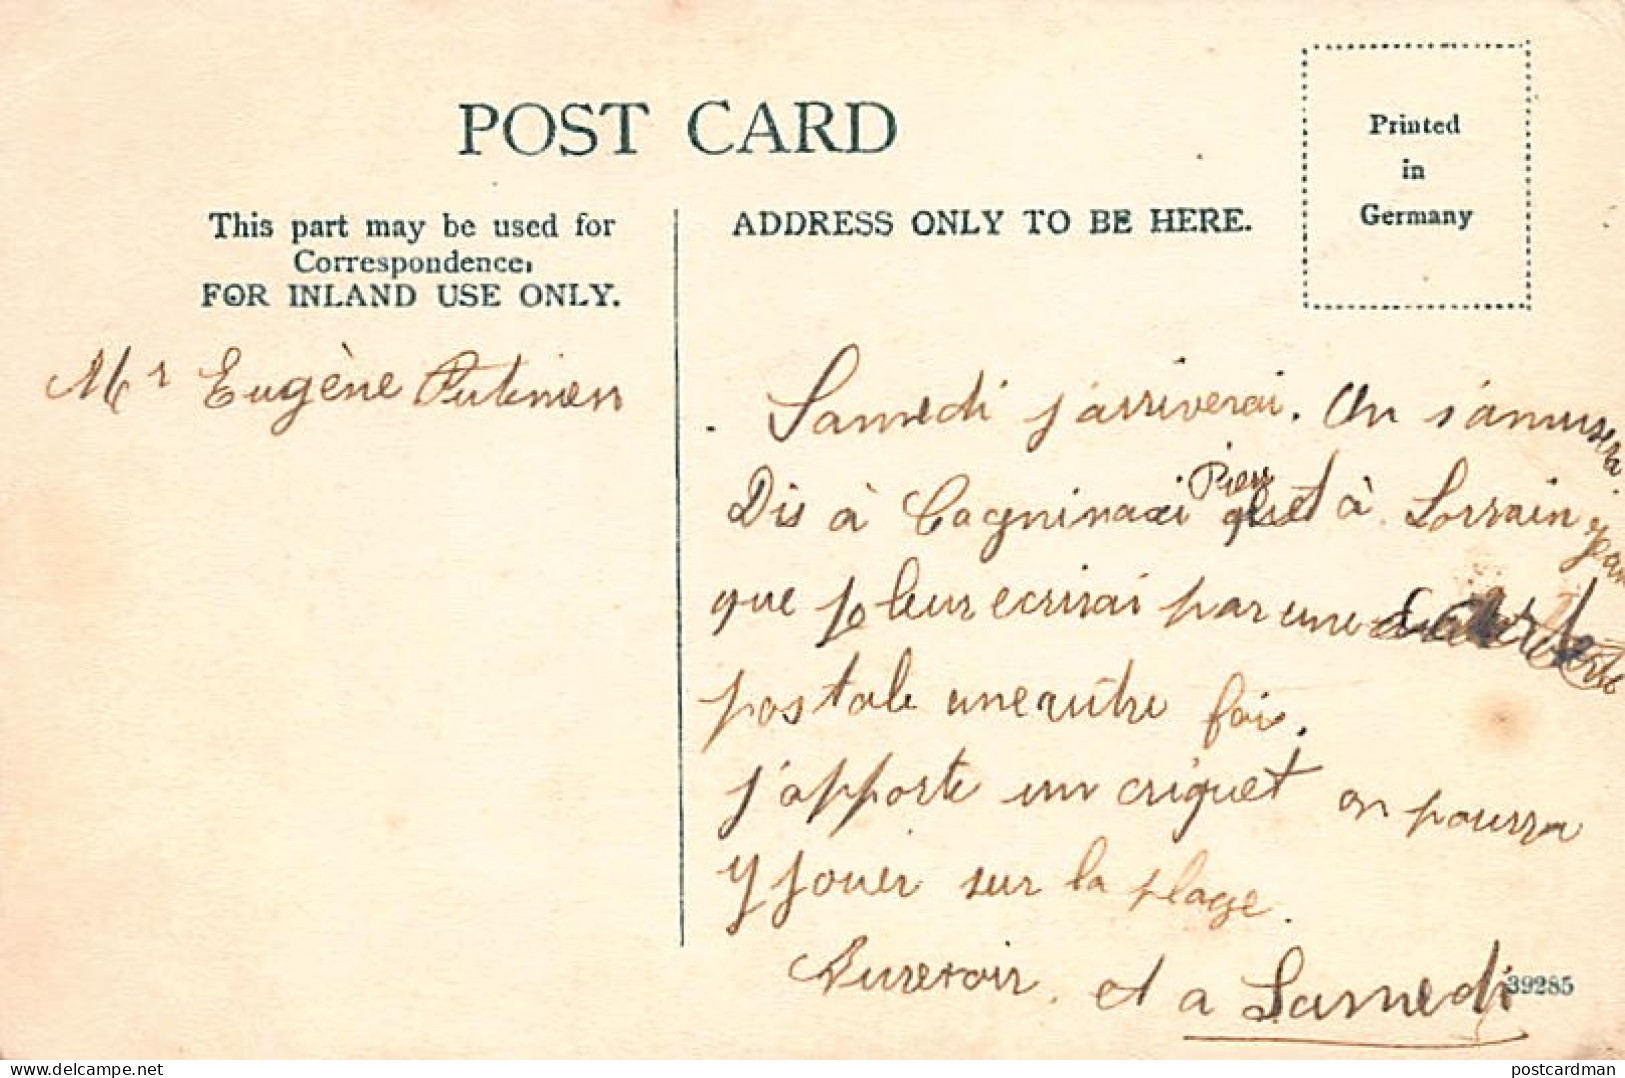 POST CARD
Printed
in
Germany
This part may be used for
Correspondence,
FOR INLAND USE ONLY.
ADDRESS ONLY TO BE HERE.
Mr Eugène
Samedi j'arriverai. On s'amusera.
Dis à Cagninacci Pierre et à Lorrain Jean
que je leur ecrirai par une carte
postale une autre fois.
j'apporte un criquet on pourra
y jouer sur la plage.
Aurevoir. et a Samedi
39285
delcampe.net
postcardman